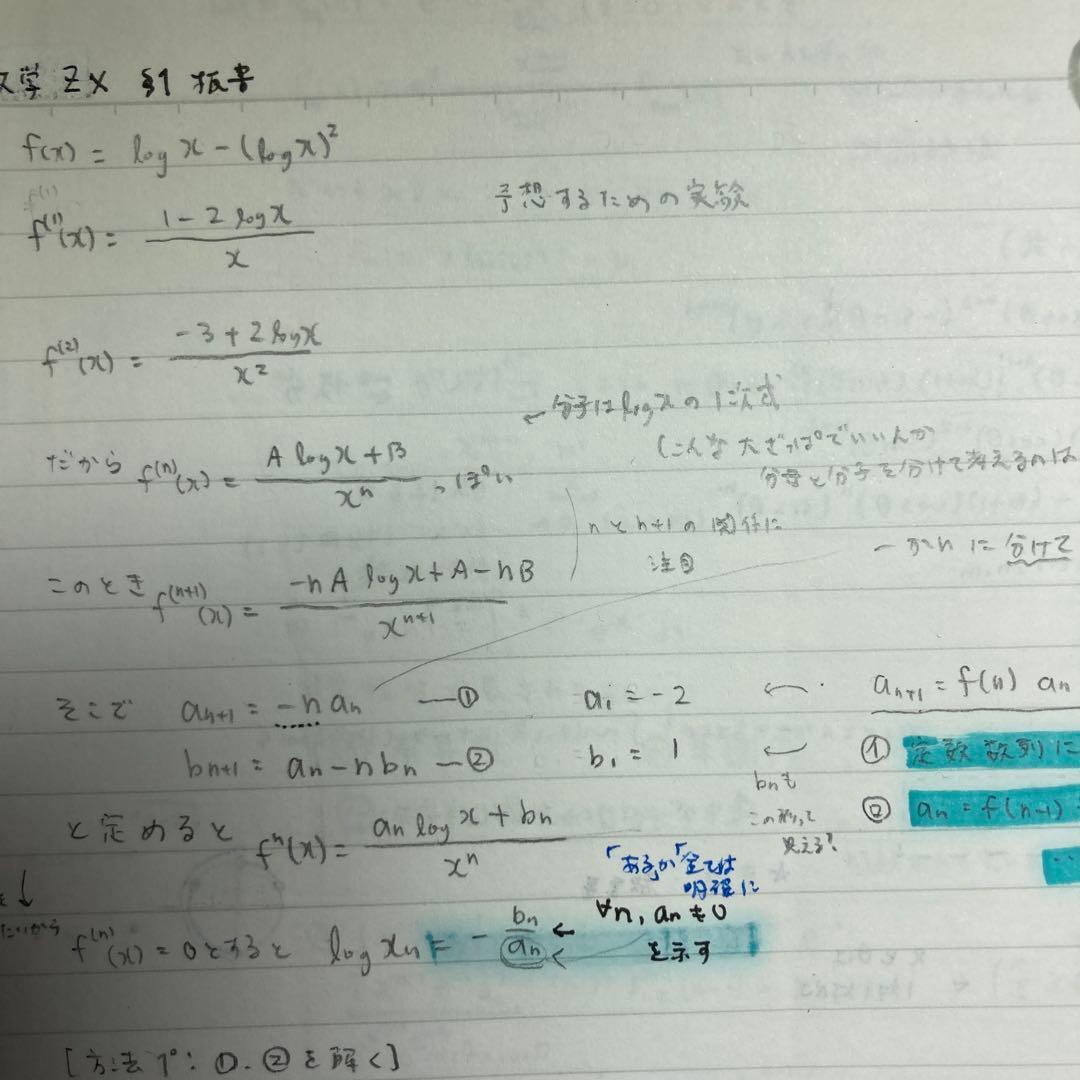 数学 ZX §1 板書
f(x) = log x - (log x)²
f⁽¹⁾(x) = (1 - 2 log x) / x
予想するための実験
f⁽²⁾(x) = (-3 + 2 log x) / x²
← 分子は log x の1次式
(こんな大ざっぱでいいんか
分母と分子を分けて考えるのは
だから f⁽ⁿ⁾(x) = (A log x + B) / xⁿ っぽい
nとn+1の関係に
注目
一かnに分けて
このとき f⁽ⁿ⁺¹⁾(x) = (-nA log x + A - nB) / xⁿ⁺¹
そこで aₙ₊₁ = -n aₙ —① a₁ = -2 ←
aₙ₊₁ = f(n) aₙ
bₙ₊₁ = aₙ - n bₙ —② b₁ = 1 ←
① 定数数列に
bₙも
この形って
見える?
② aₙ = f(n-1)
と定めると fⁿ(x) = (aₙ log x + bₙ) / xⁿ
「ある」か「全ては
明確に
f⁽ⁿ⁾(x) = 0とすると log xₙ = - bₙ / aₙ ←
∀n, aₙ ≠ 0
を示す
[方法1°: ①, ②を解く]